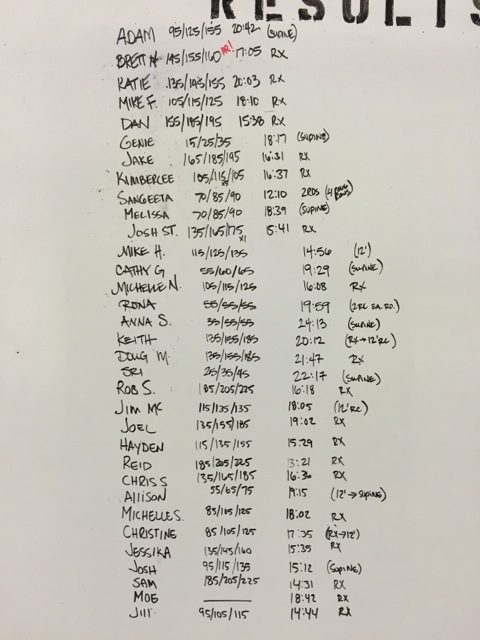 RESULTS
ADAM 95/125/155 20:42 (SUPINE)
BRETT N 145/155/160 PR! 17:05 RX
KATIE 135/145/155 20:03 RX
MIKE F. 105/115/125 18:10 RX
DAN 155/185/195 15:38 RX
GENIE 15/25/35 18:17 (SUPINE)
JAKE 165/185/195 16:31 RX
KIMBERLEE 105/115/105 16:37 RX
SANGEETA 70/85/90 12:10 2RDS
MELISSA 70/85/90 18:39 (SUPINE)
JOSH ST. 135/165/175 x1 15:41 RX
MIKE H. 115/125/135 14:56 (12")
CATHY G 55/60/65 19:29 (SUPINE)
MICHELLE N. 105/115/125 16:08 RX
RONA 55/55/55 19:59 (2RC EA. RD.)
ANNA S. 35/55/55 24:13 (SUPINE)
KEITH 135/155/185 20:12 (RX→12"RC)
DOUG M. 135/155/185 21:47 RX
SRI 25/35/45 22:17 (SUPINE)
ROB S. 185/205/225 16:18 RX
JIM MC 115/135/135 18:05 (12"RC)
JOEL 135/155/185 19:02 RX
HAYDEN 115/135/155 15:29 RX
REID 185/205/225 13:21 RX
CHRIS S 135/165/185 16:36 RX
ALLISON 55/65/75 19:15 (12"→SUPINE)
MICHELLE S. 85/105/125 18:02 RX
CHRISTINE 85/105/125 17:35 (RX→12")
JESSIKA 135/145/160 15:35 RX
JOSH 95/115/135 15:12 (SUPINE)
SAM 185/205/225 14:31 RX
MOE 18:42 RX
JILL 95/105/115 14:44 RX